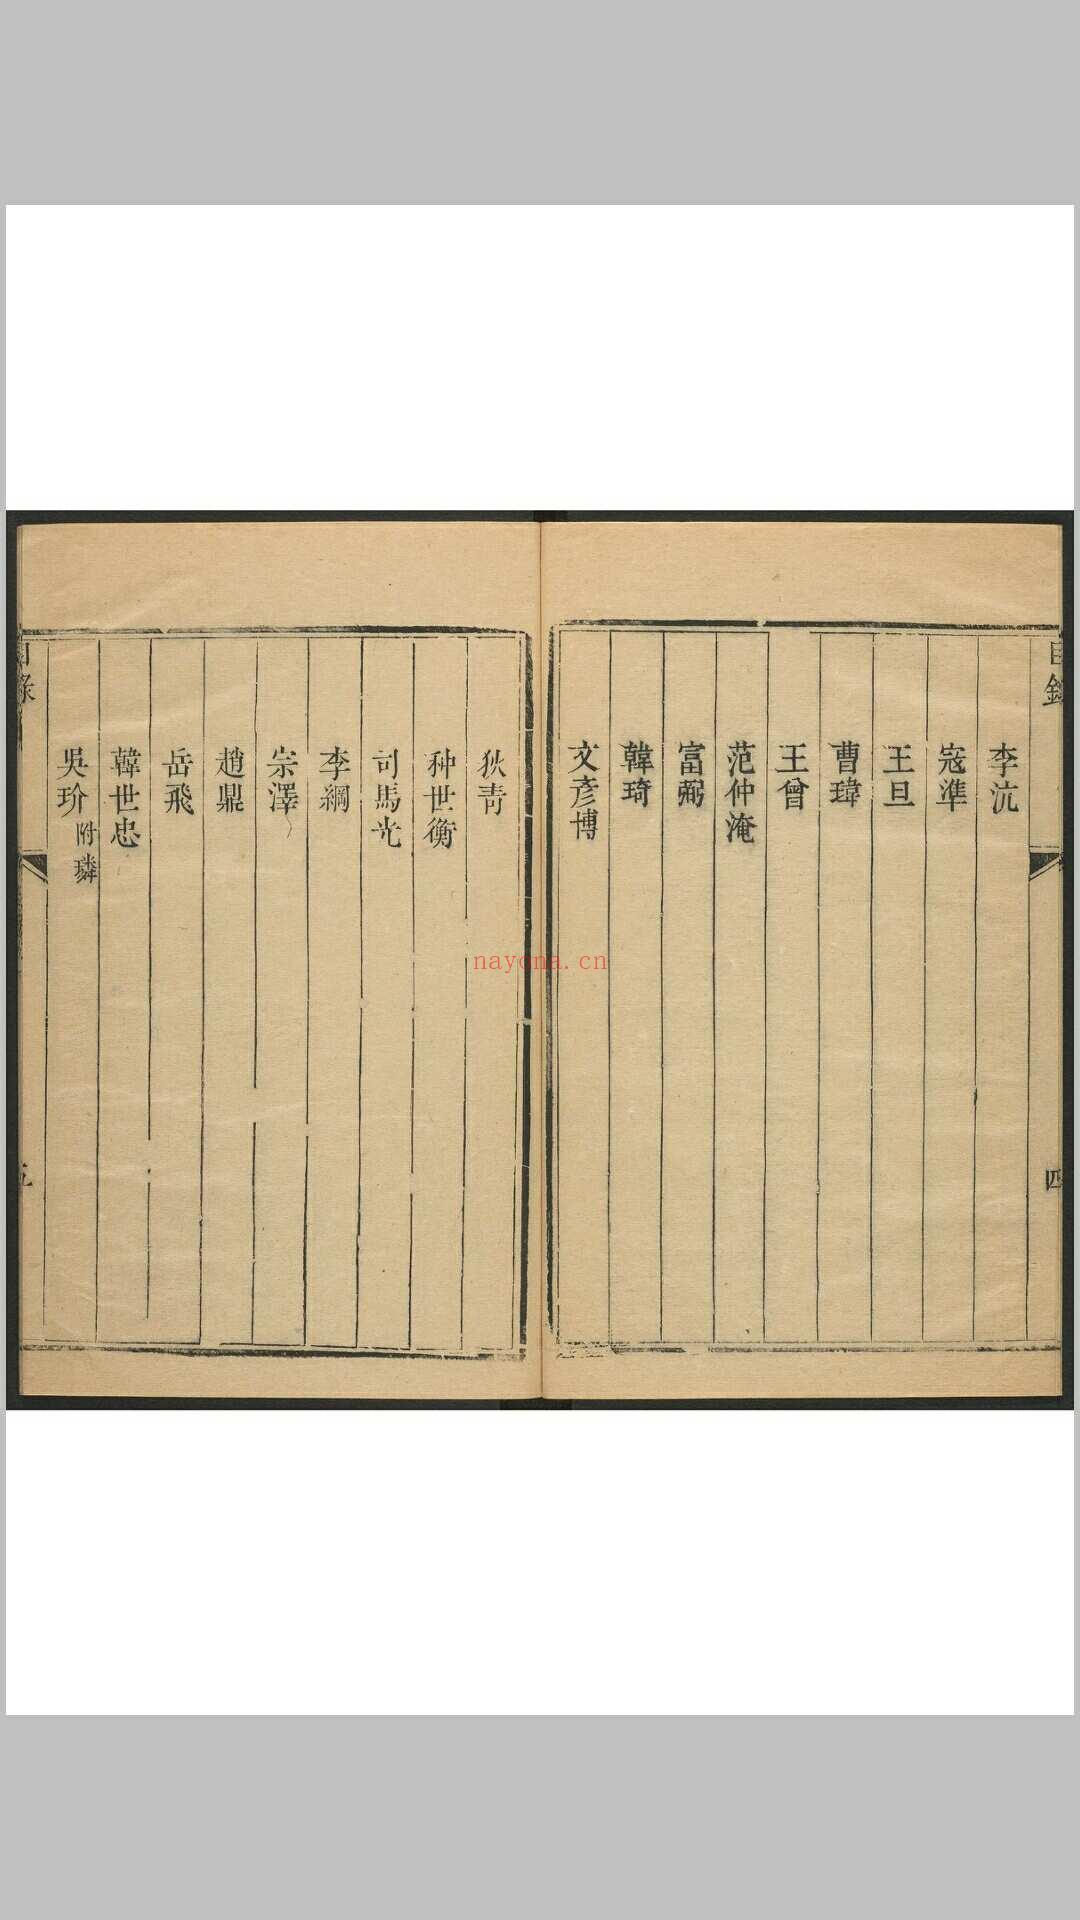 目錄
四
李沆
寇準
王旦
曹瑋
王曾
范仲淹
富弼
韓琦
文彥博
狄青
种世衡
司馬光
李綱
宗澤
趙鼎
岳飛
韓世忠
吳玠附璘
目錄
五
nayona.cn